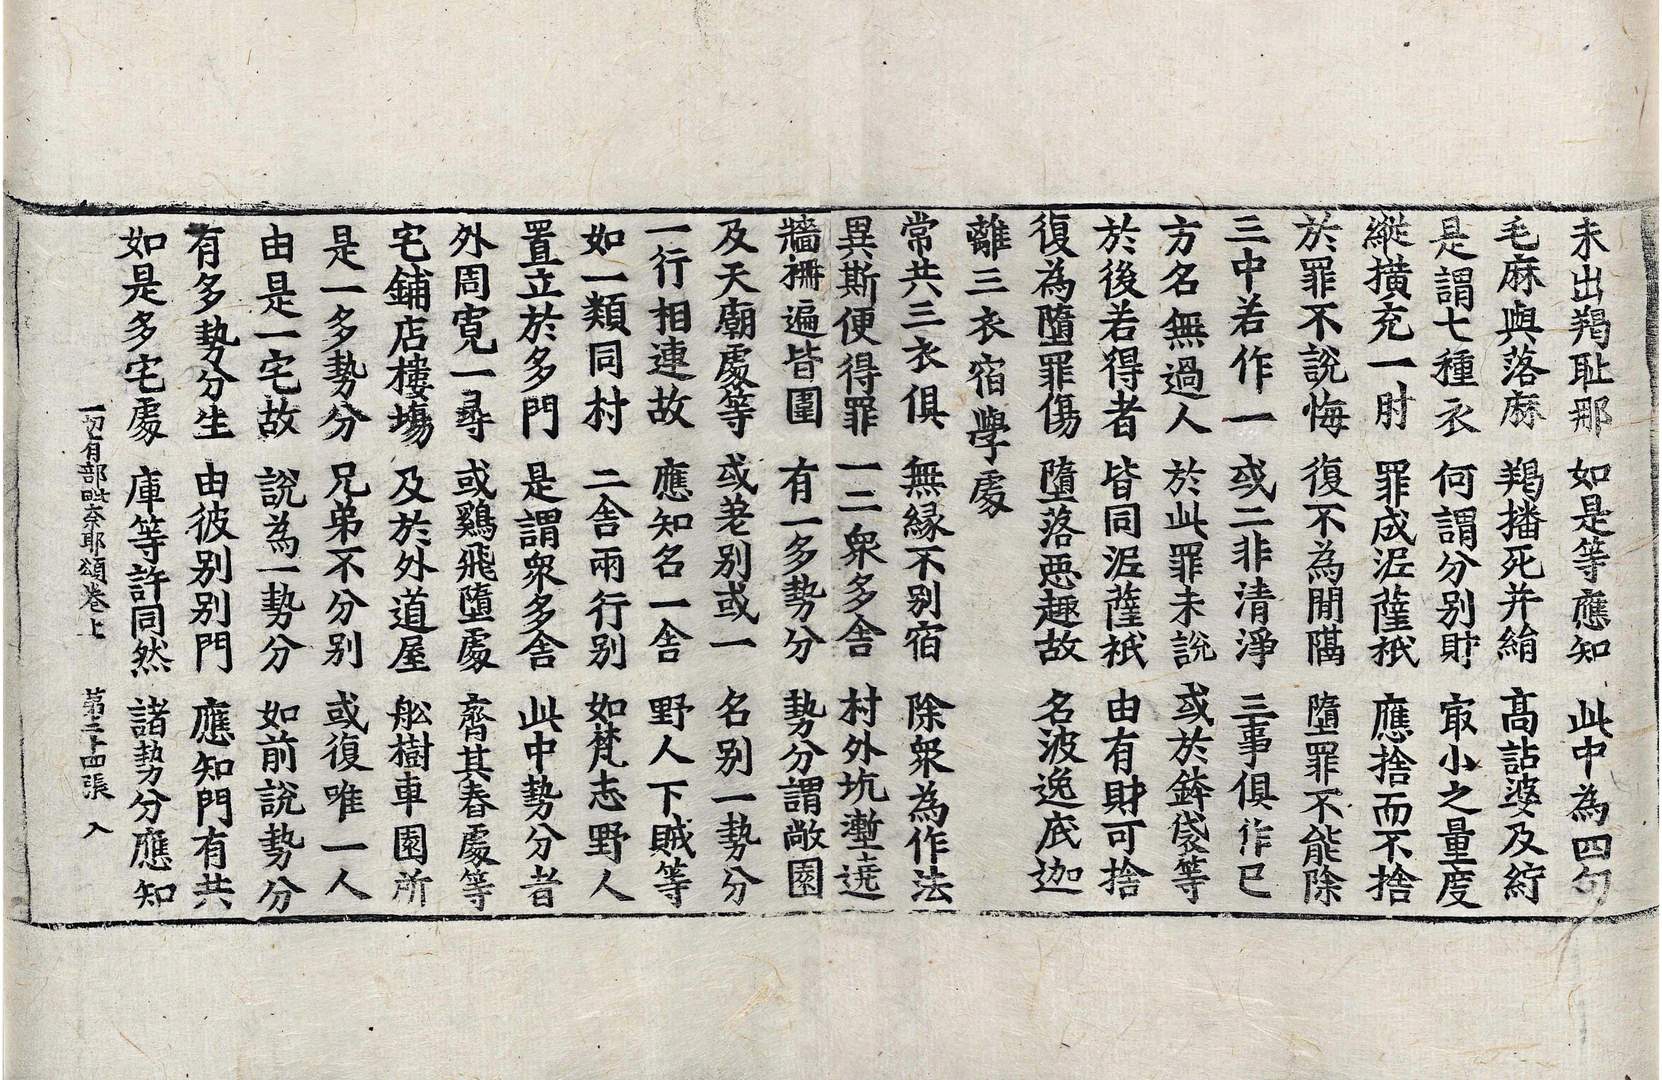 未出羯耻那　如是等應知　此中為四句
毛麻與落麻　羯播死并絹　高詀婆及紵
是謂七種衣　何謂分別財　㝡小之量度
縱撗充一肘　罪成泥薩祇　應捨而不捨
於罪不說悔　復不為閒隔　墮罪不能除
三中若作一　或二非清淨　三事俱作已
方名無過人　於此罪未說　或於鉢袋等
於後若得者　皆同泥薩祇　由有財可捨
復為墮罪傷　墮落惡趣故　名波逸底迦
離三衣宿學處
常共三衣俱　無緣不別宿　除衆為作法
異斯便得罪　一二衆多舍　村外坑壍遶
牆柵遍皆圍　有一多勢分　勢分謂敞園
及天廟處等　或差別或一　名別一勢分
一行相連故　應知名一舍　野人下賊等
如一類同村　二舍兩行別　如梵志野人
置立於多門　是謂衆多舍　此中勢分者
外周寬一尋　或鷄飛墮處　齊其舂處等
宅鋪店樓塲　及於外道屋　舩樹車園所
是一多勢分　兄弟不分別　或復唯一人
由是一宅故　說為一勢分　如前說勢分
有多勢分生　由彼別別門　應知門有共
如是多宅處　庫等許同然　諸勢分應知
一切有部毗奈耶頌卷上　第三十四張　入